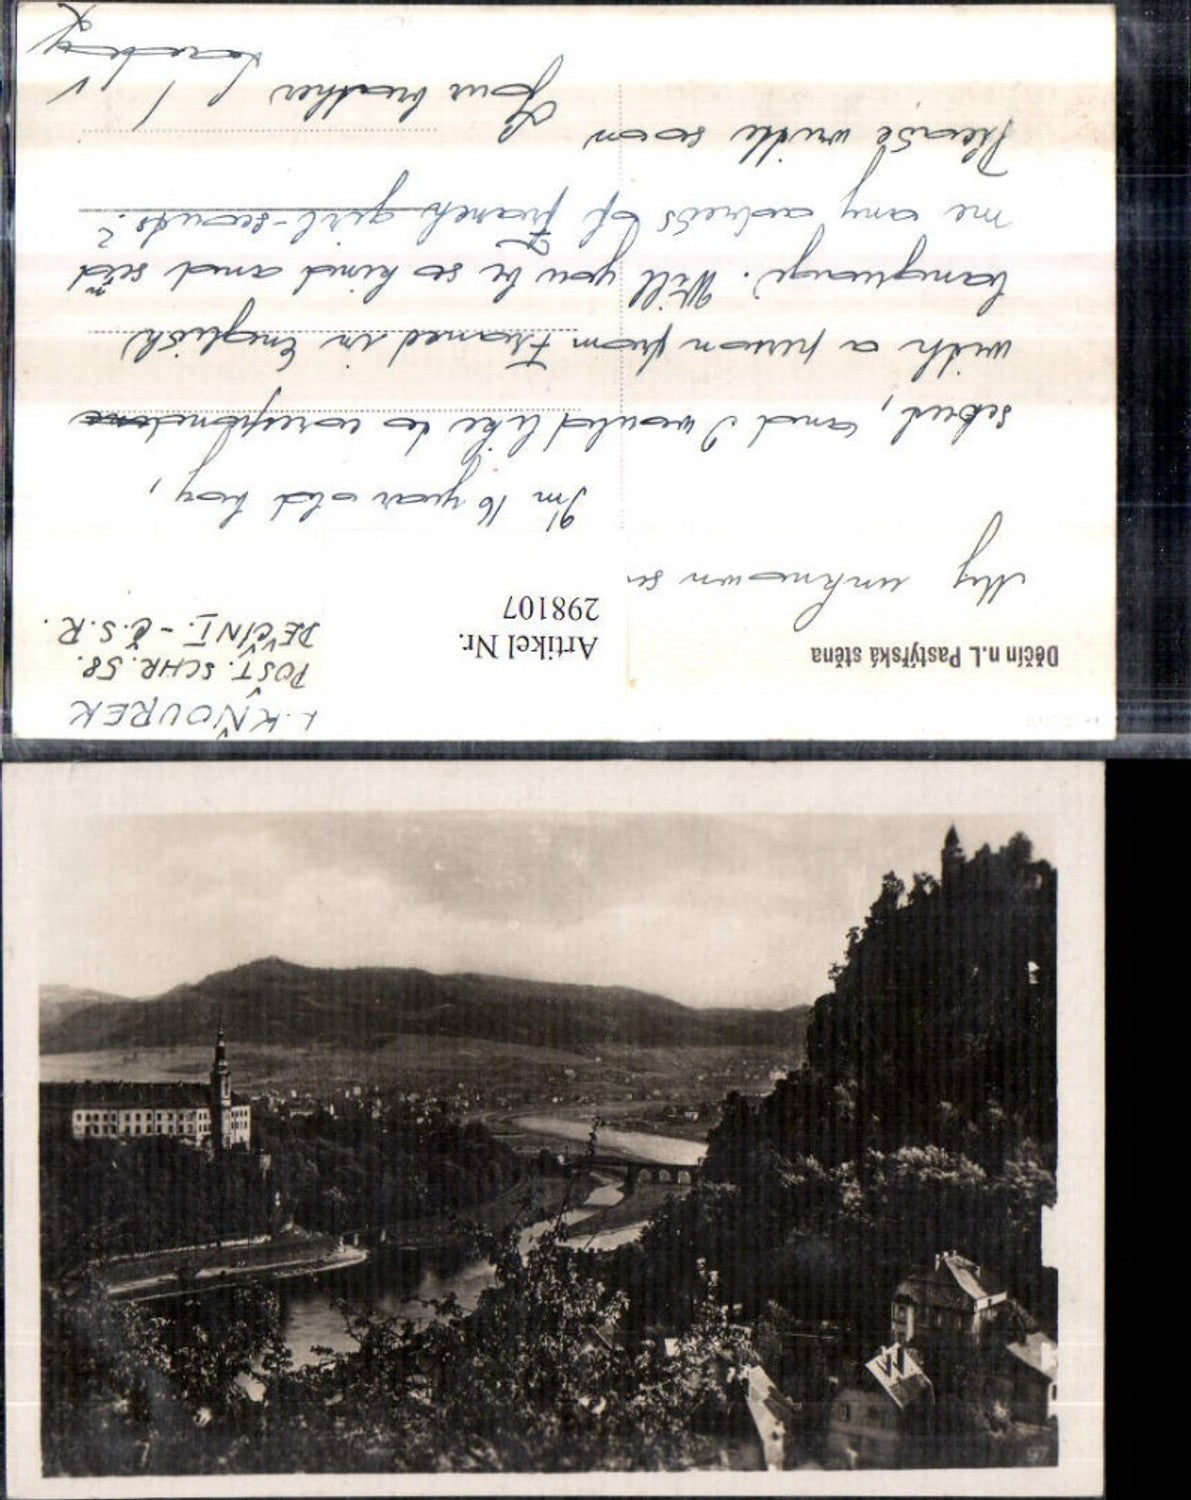 L. KŇOUREK
POST. SCHR. 58.
DĚČÍN I. - Č.S.R.
Děčín n. L. Pastýřská stěna
Artikel Nr.
298107
My unknown
I'm 16 year old boy,
and I would like to
with a person from in English
language. Will you be so kind and sĕd
n
me any adress of franch girl-scouts?
Please write soon
Your brother !
97